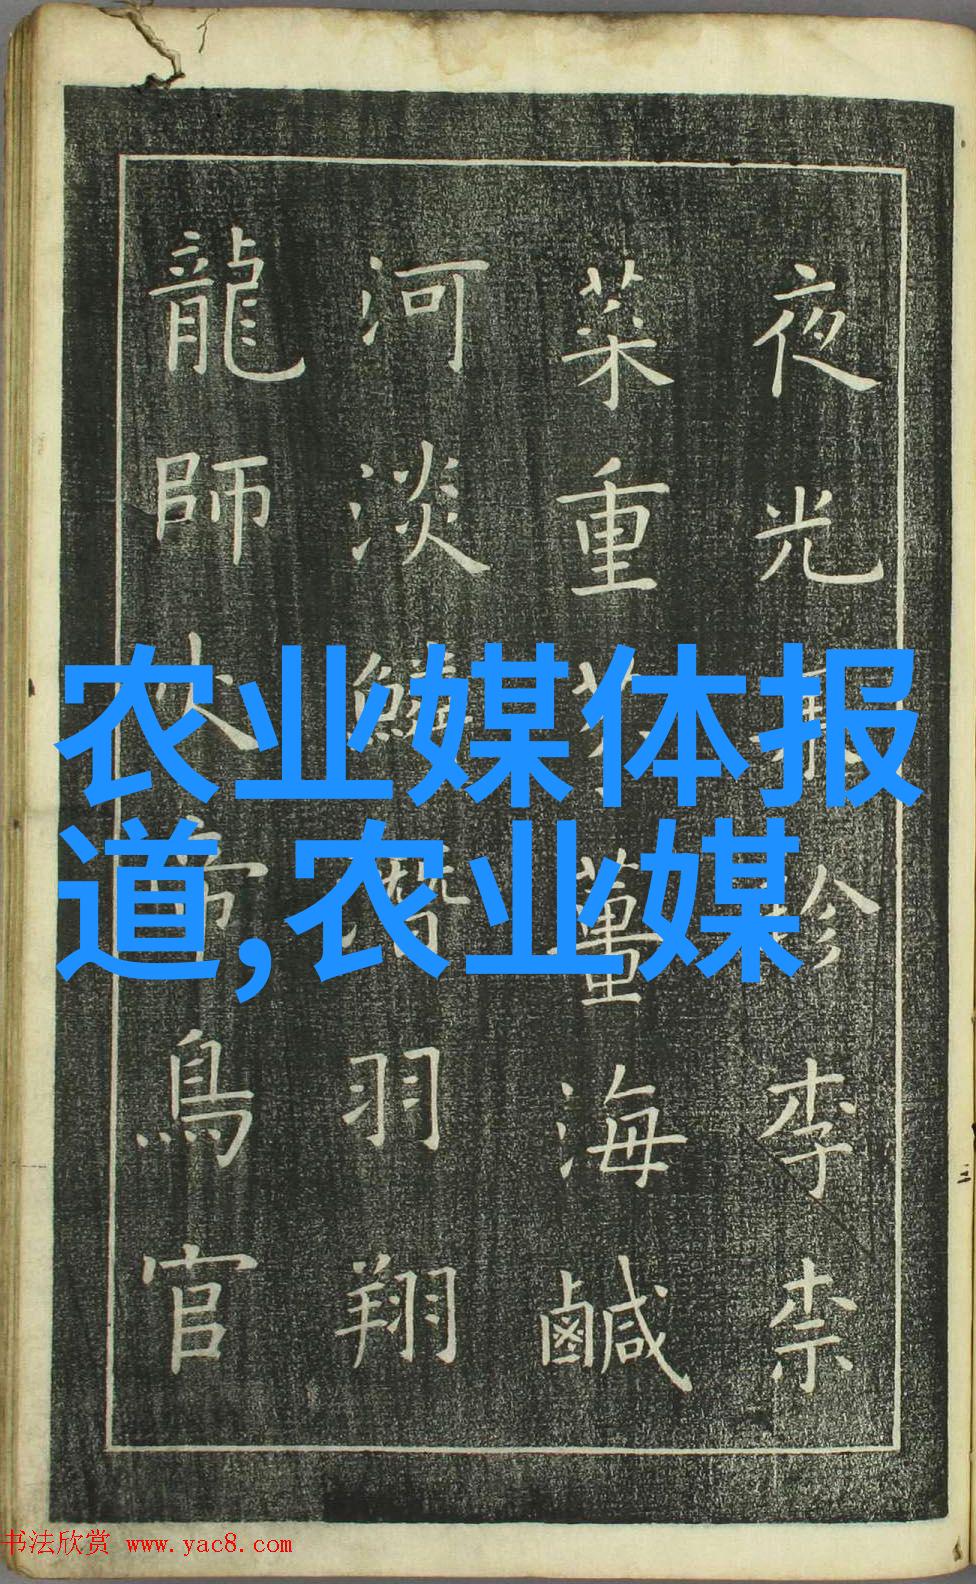 夜光果珍李柰
菜重芥薑海鹹
河淡鱗潛羽翔
龍師火帝鳥官
农业媒体报
道,农业媒
书法欣赏 www.yac8.com